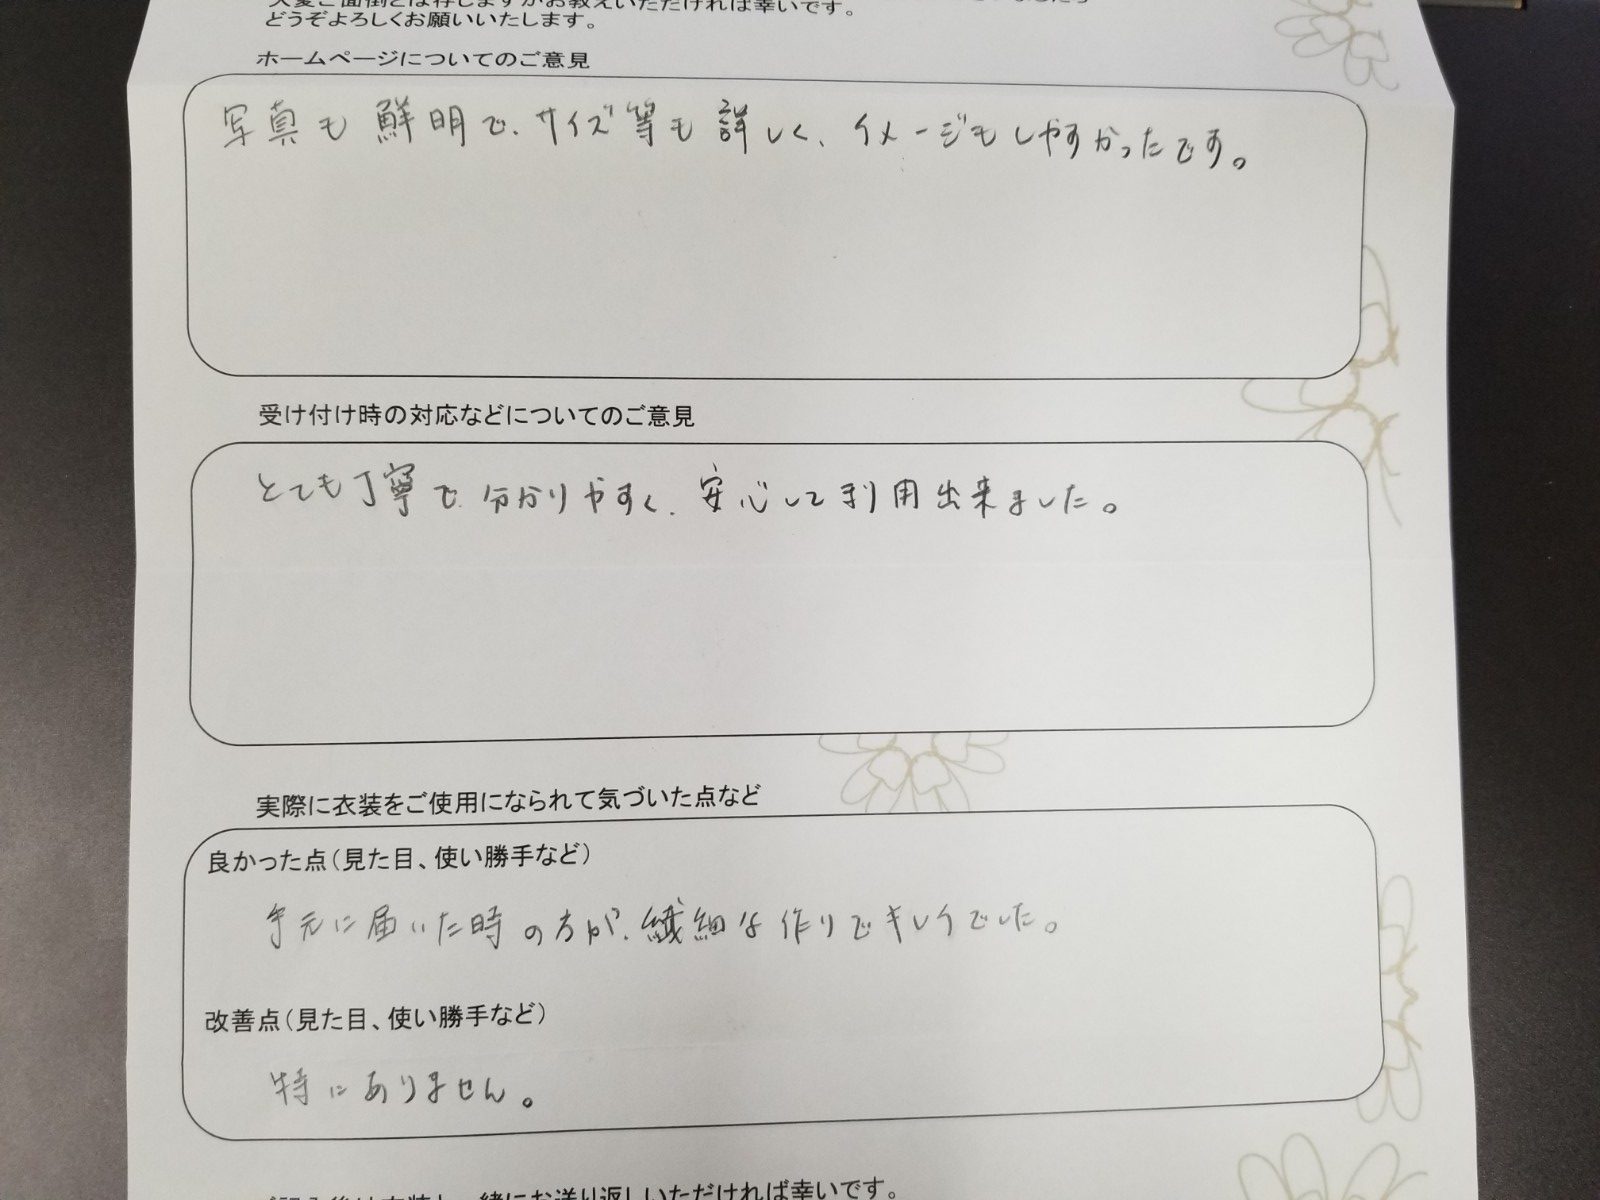 大変ご面倒とは存じますがお教えいただければ幸いです。
どうぞよろしくお願いいたします。
ホームページについてのご意見
写真も鮮明で、サイズ等も詳しく、イメージもしやすかったです。
受け付け時の対応などについてのご意見
とても丁寧で、分かりやすく、安心して利用出来ました。
実際に衣装をご使用になられて気づいた点など
良かった点(見た目、使い勝手など)
手元に届いた時の方が、繊細な作りでキレイでした。
改善点(見た目、使い勝手など)
特にありません。
衣装と一緒にお送り返しいただければ幸いです。